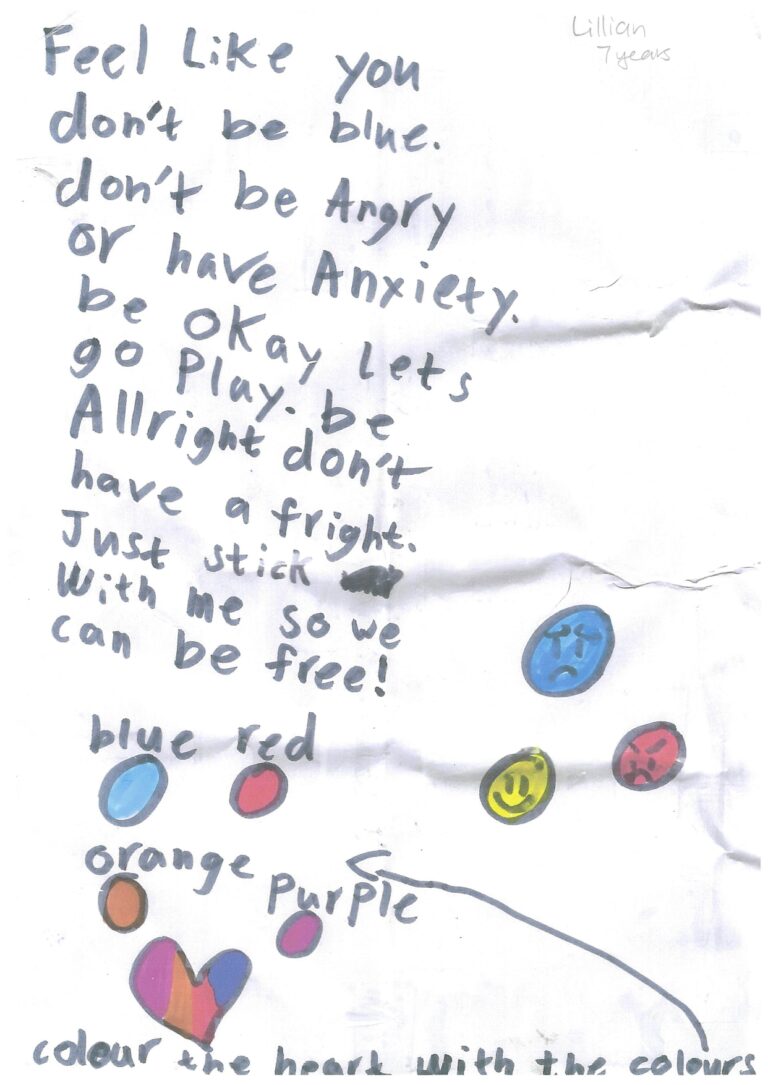 Lillian
7 years
Feel Like you
don't be blue.
don't be Angry
or have Anxiety.
be okay Lets
go Play. be
Allright don't
have a fright.
Just stick
With me so we
can be free!
blue red
orange
purple
colour the heart with the colours